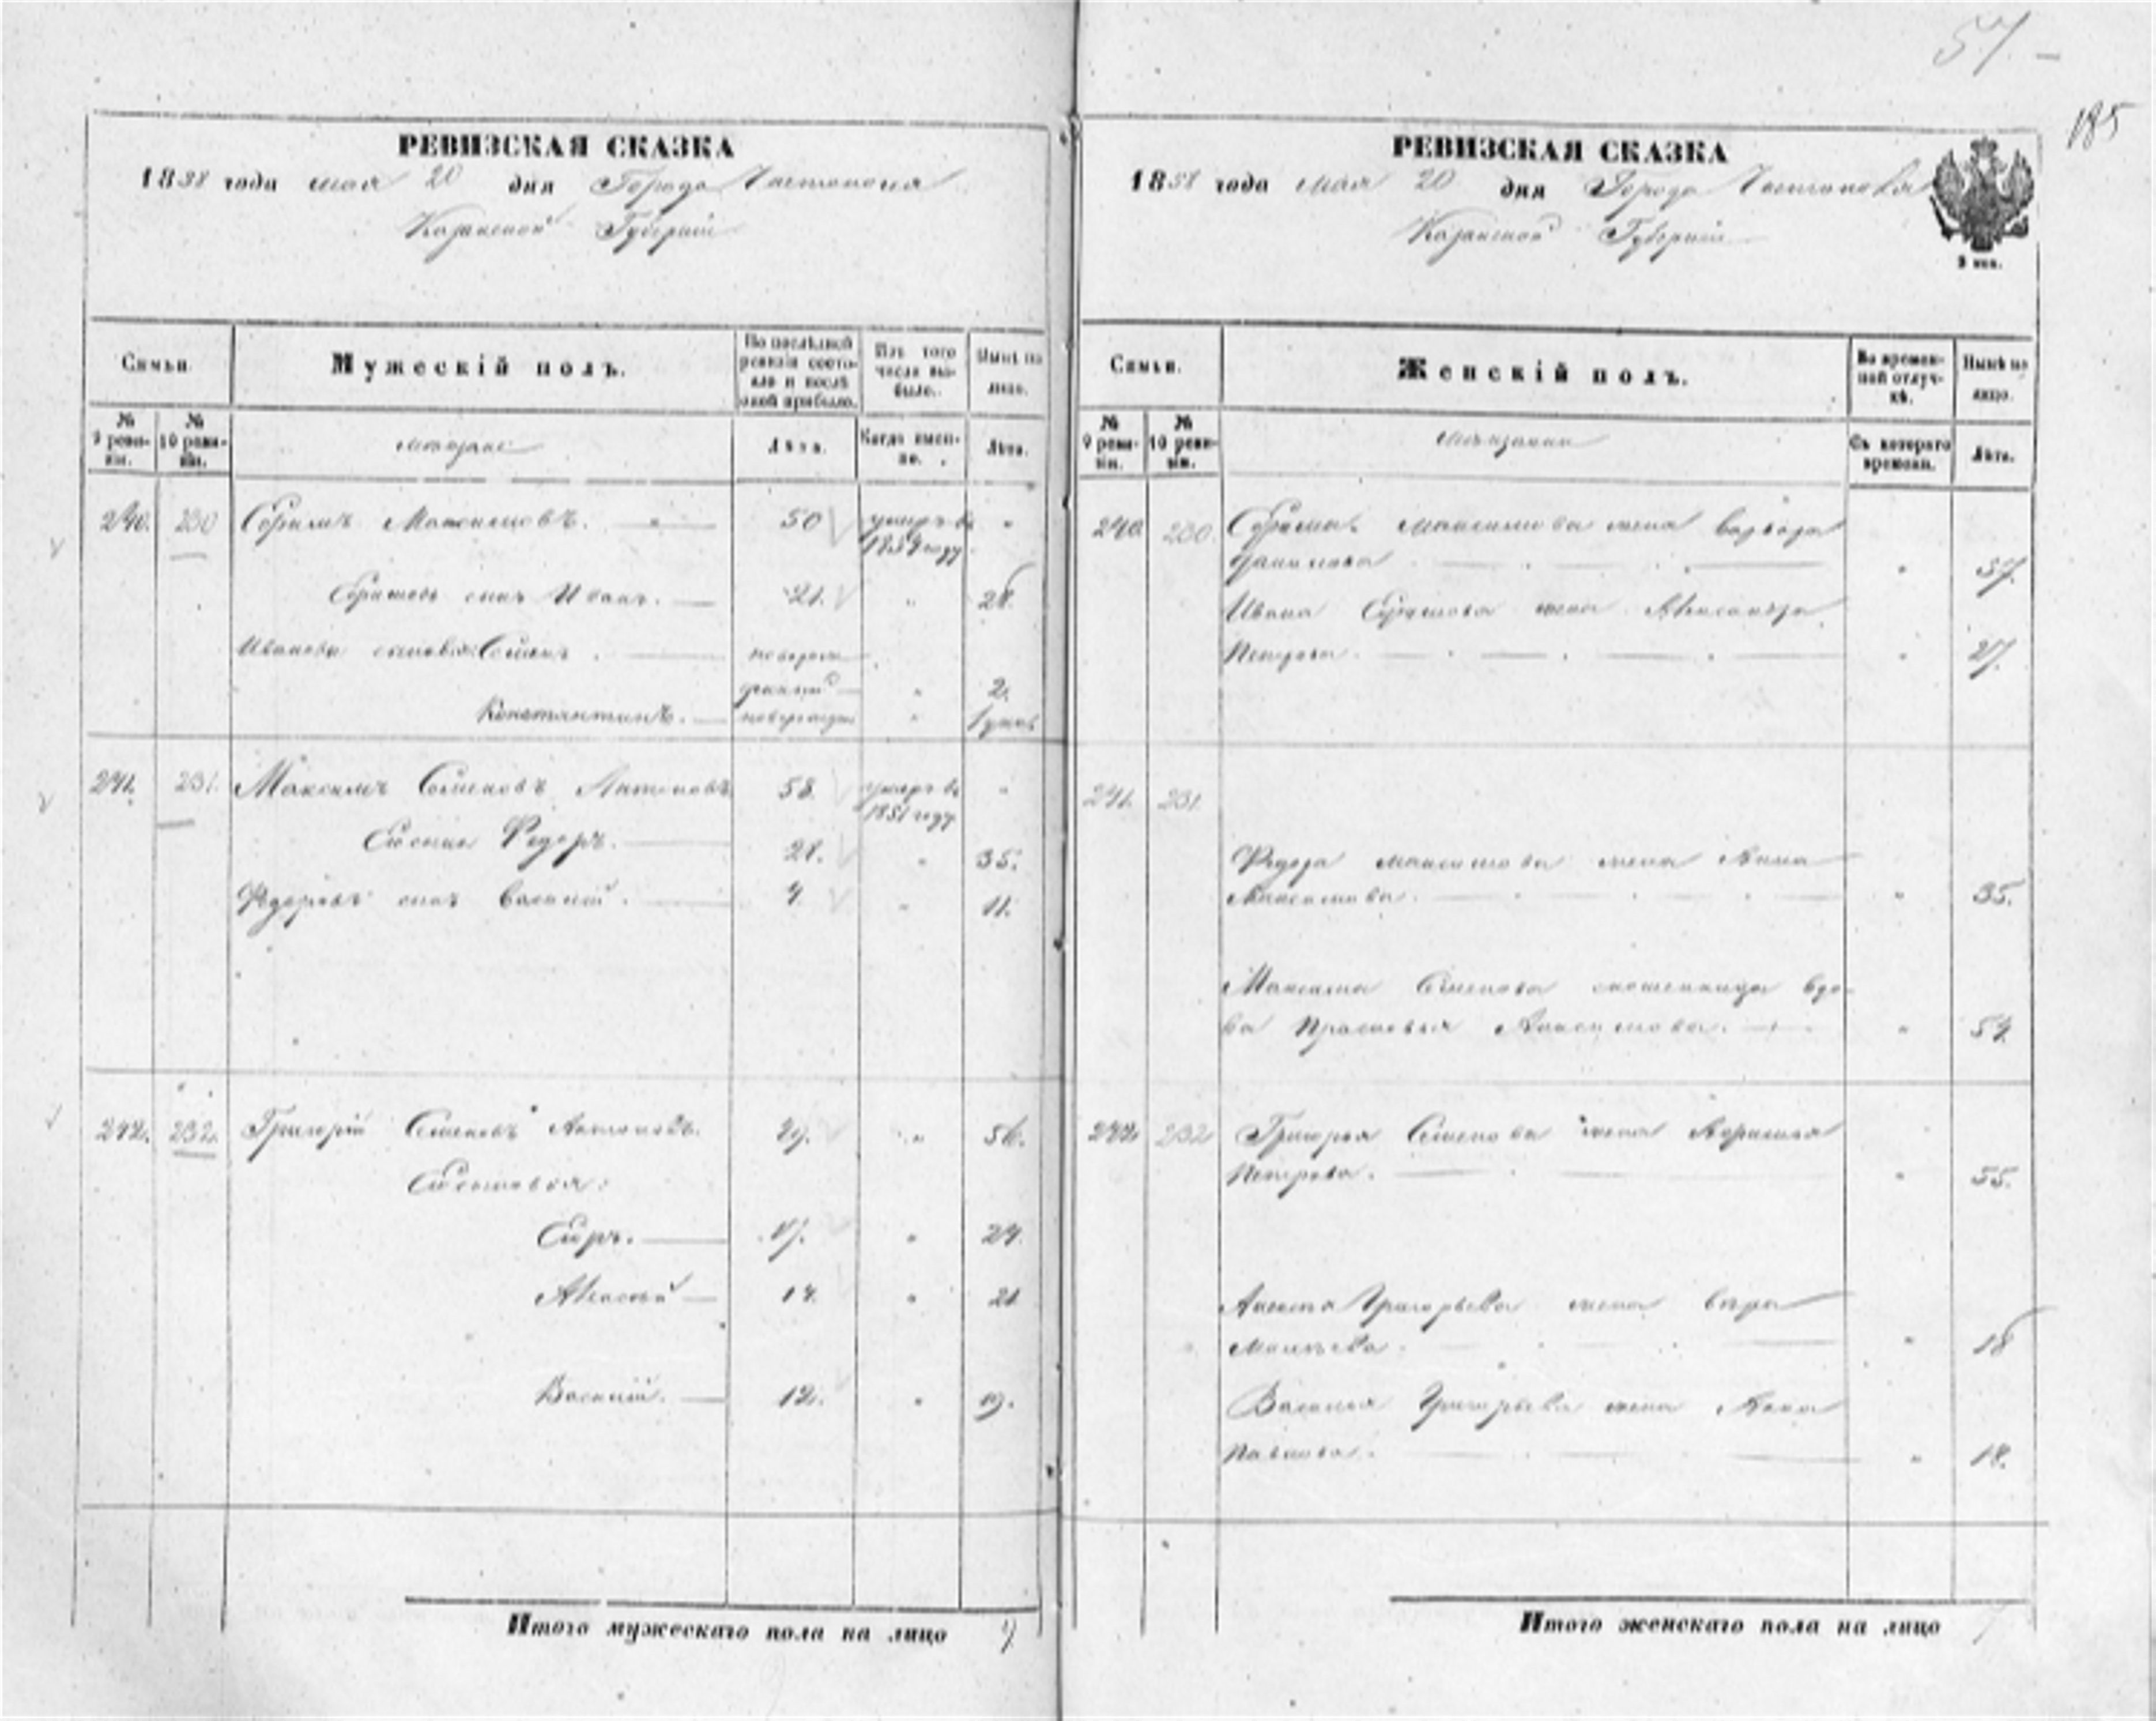 57. –
185
РЕВИЗСКАЯ СКАЗКА
1858 года мая 20 дня Города Чистополя
Казанской Губернии
Семьи.
Мужескій полъ.
По послѣдней ревизіи состояло и послѣ оной прибыло.
Изъ того числа выбыло.
Нынѣ на лицо.
№ 9 ревизіи.
№ 10 ревизіи.
мѣщане
Лѣта.
Когда именно.
Лѣта.
240. 230 Максимовъ. 50 умеръ въ 1854 году "
сынъ Иванъ. 21. " 28.
Ивановы сыновья: Семенъ. новорожденный " 2.
Константинъ. новорожден "
241. 231. Максимъ Семеновъ Антоновъ 58. умеръ в 1851 году "
Сынъ Федоръ. 28. " 35.
Федоровъ сынъ Василій. 4. " 11.
242. 232. Григорій Семеновъ Антоновъ. 49. " 56.
Сыновья:
17. " 24.
Алексѣй 14. " 21
Василій. 12. " 19.
Итого мужескаго пола на лицо
РЕВИЗСКАЯ СКАЗКА
1858 года мая 20 дня Города Чистополя
Казанской Губернии
Семьи.
Женскій полъ.
Во временной отлучкѣ.
Нынѣ на лицо.
№ 9 ревизіи.
№ 10 ревизіи.
мѣщанки
Съ котораго времени.
Лѣта.
240. 230. Максимова жена
Данилова " 57.
Ивана жена Александра
Петрова. " 27.
241. 231.
Федора Максимова жена Анна
" 35.
Максима Семенова вдо-
ва Прасковья " 54.
242. 232 Григорья Семенова жена
Петрова. " 55.
Алексѣя Григорьева жена Вѣра
" 18
Василья Григорьева жена Анна
Павлова. " 18.
Итого женскаго пола на лицо